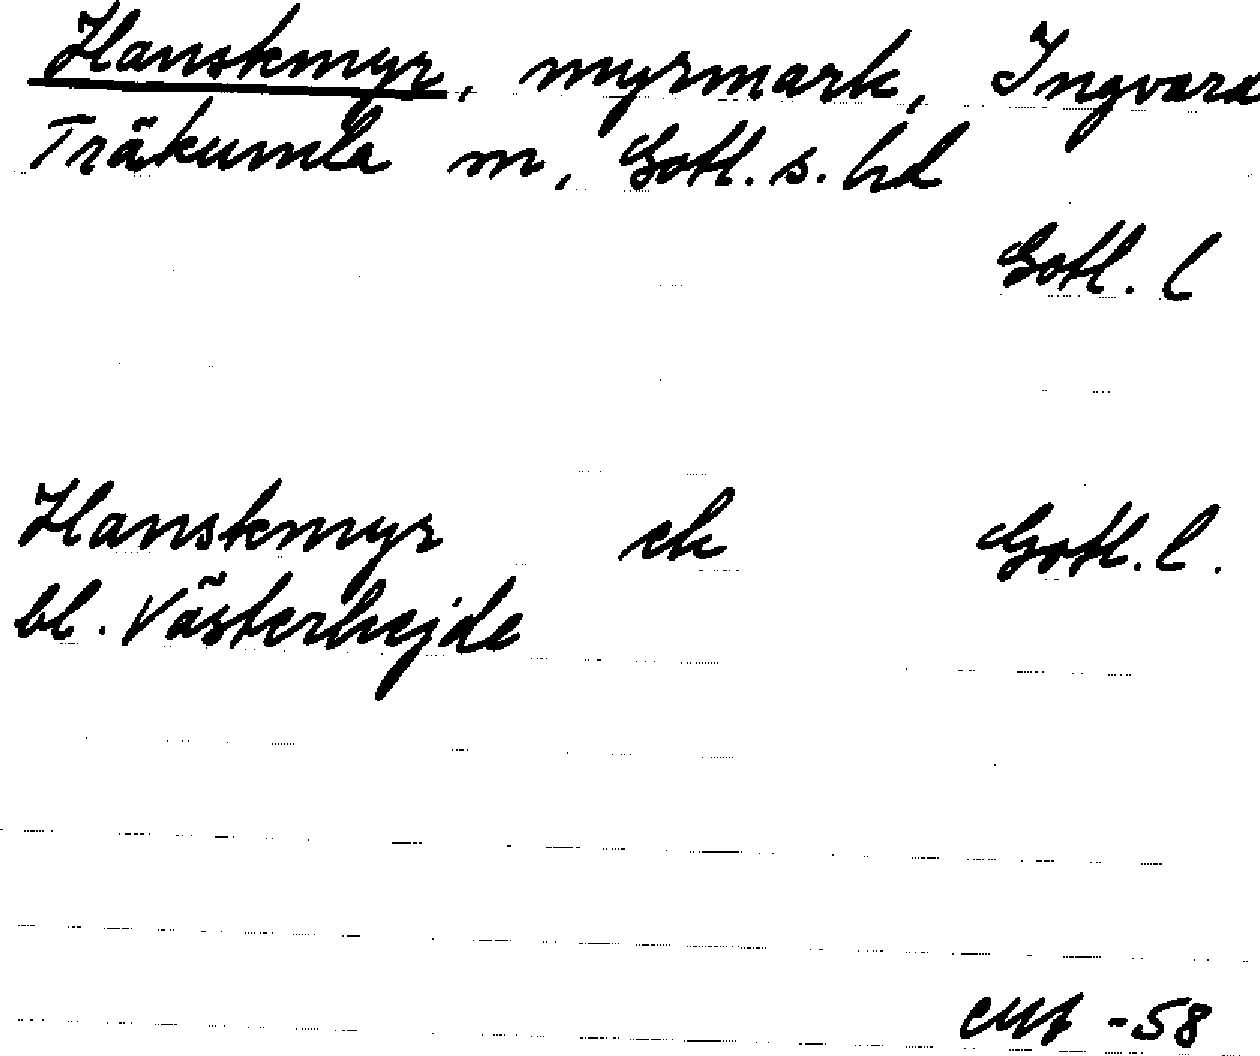 Hanskmyr, myrmark, Ingvard
Träkumla m, Gotl. s. hd
Gotl. l
Hanskmyr ek Gotl. l.
bl. Västerhejde
-58